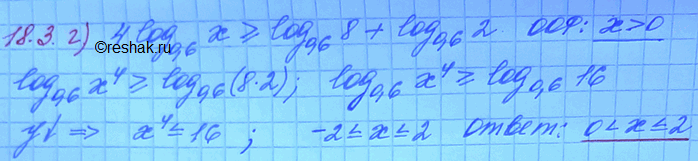 18.3. г) 4 log₀,₆ x ≥ log₀,₆ 8 + log₀,₆ 2. ООФ: x>0
©reshak.ru
log₀,₆ x⁴ ≥ log₀,₆ (8·2); log₀,₆ x⁴ ≥ log₀,₆ 16
y↓ => x⁴ ≤ 16 ; -2 ≤ x ≤ 2 Ответ: 0 < x ≤ 2